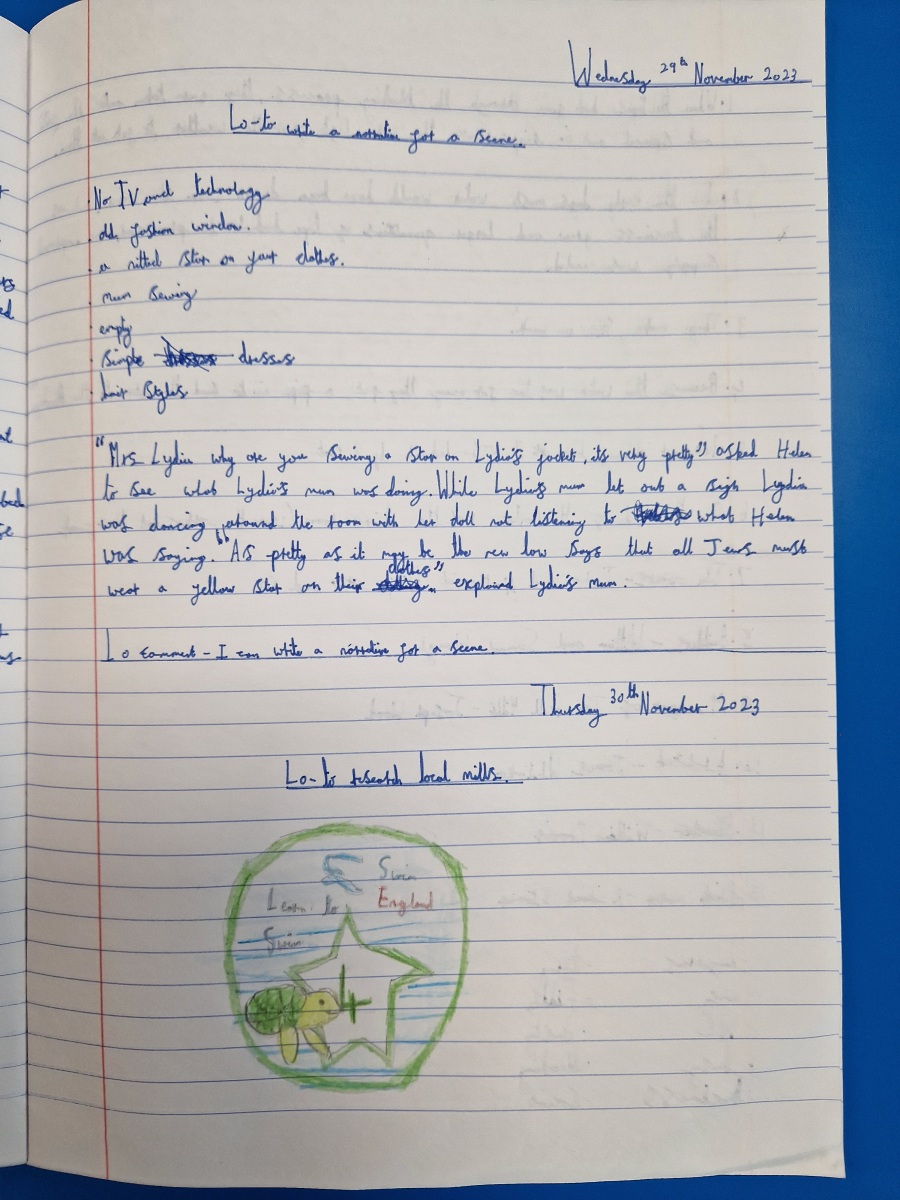 Wednesday 29th November 2023
Lo-to write a narrative for a scene.
No TV and technology
old fashion window.
a nitted star on your clothes.
mum sewing
empty
simple dresses
hair styles
"Mrs Lydia why are you sewing a star on Lydia's jacket, it's very pretty" asked Helen
to see what Lydia's mum was doing. While Lydia's mum let out a sigh Lydia
was dancing around the room with her doll not listening to what Helen
was saying. "As pretty as it may be the new law says that all Jews must
wear a yellow star on their clothes" explained Lydia's mum.
Lo comment - I can write a narrative for a scene.
Thursday 30th November 2023
Lo-to research local mills.
Swim
Learn to England
Swim
4